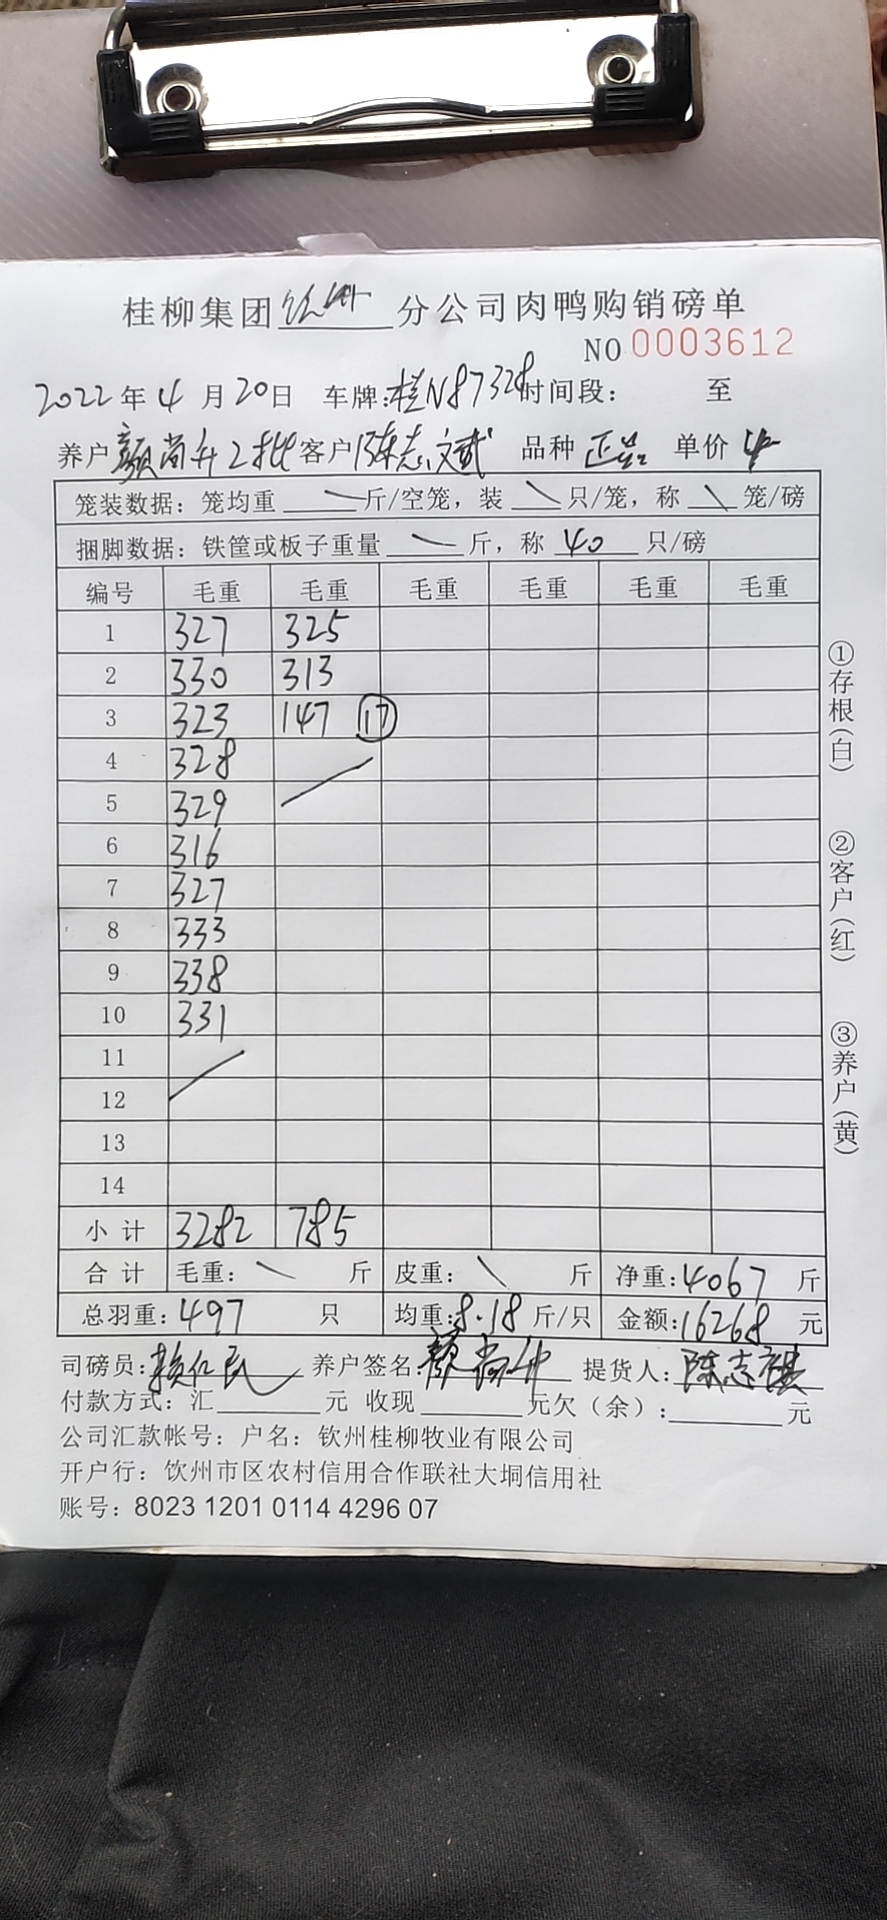 桂柳集团钦州分公司肉鸭购销磅单
NO 0003612
2022年4月20日 车牌:桂N87328时间段: 至
养户颜尚升2批客户陈志斌 品种 正品 单价 4
笼装数据: 笼均重 斤/空笼, 装 只/笼, 称 笼/磅
捆脚数据: 铁筐或板子重量 斤, 称 40 只/磅
编号 毛重 毛重 毛重 毛重 毛重 毛重
1 327 325
2 330 313
3 323 147 ⑰
4 328
5 329
6 316
7 327
8 333
9 338
10 331
11
12
13
14
小计 3282 785
合计 毛重: 斤 皮重: 斤 净重:4067 斤
总羽重:497 只 均重:8.18斤/只 金额:16268 元
司磅员:赖仁民 养户签名:颜尚升 提货人:陈志
付款方式: 汇 元 收现 元欠(余): 元
公司汇款帐号: 户名: 钦州桂柳牧业有限公司
开户行: 钦州市区农村信用合作联社大垌信用社
账号: 8023 1201 0114 4296 07
①存根(白)
②客户(红)
③养户(黄)